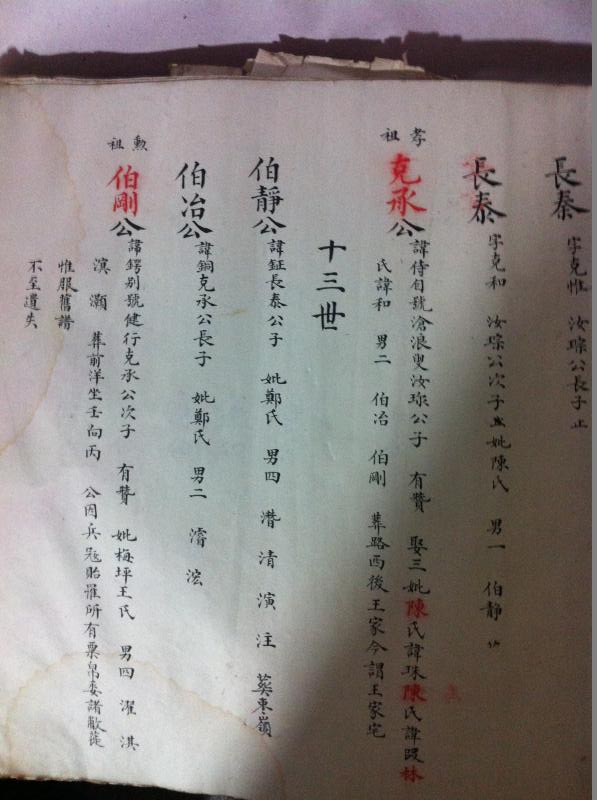 長泰 字克惟 汝琮公長子止
長泰 字克和 汝琮公次子 妣陳氏 男一 伯静
孝祖
克承公 諱侍旬號滄浪叟汝珎公子 有贊 娶三妣陳氏諱珠陳氏諱叚林
氏諱和 男二 伯冶 伯剛 葬路西後王家今謂王家宅
十三世
伯靜公 諱鉦長泰公子 妣鄭氏 男四 濳 清 演 注 葬東嶺
伯冶公 諱銅克承公長子 妣鄭氏 男二 濬 浤
勲祖
伯剛公 諱鍔别號健行克承公次子 有贊 妣梅坪王氏 男四 濯 淇
濵 灝 葬前洋坐壬向丙 公因兵寇貽罹所有粟帛委諸敵蓰
惟服舊譜
不至遺失